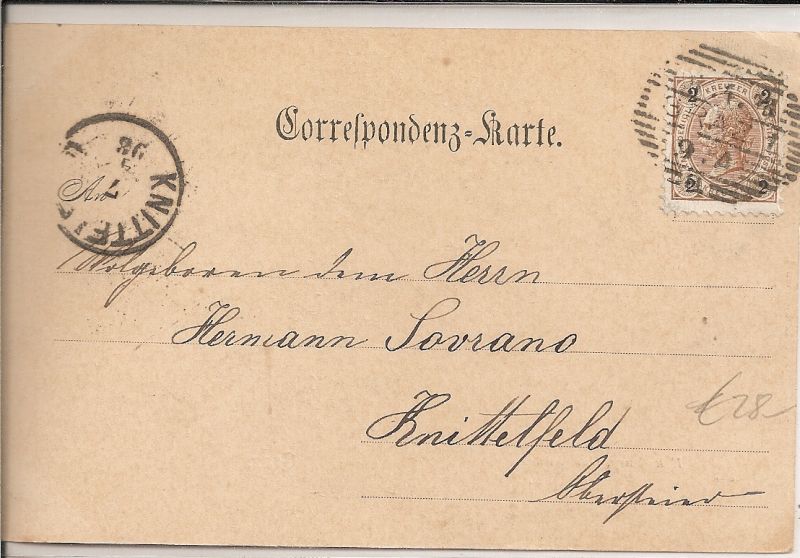 Correspondenz-Karte.
2 KREUZER 2
2 2
KNITTELF
98
An
Wolgeboren dem Herrn
Hermann Sovrano
Knittelfeld
Obersteier
€28